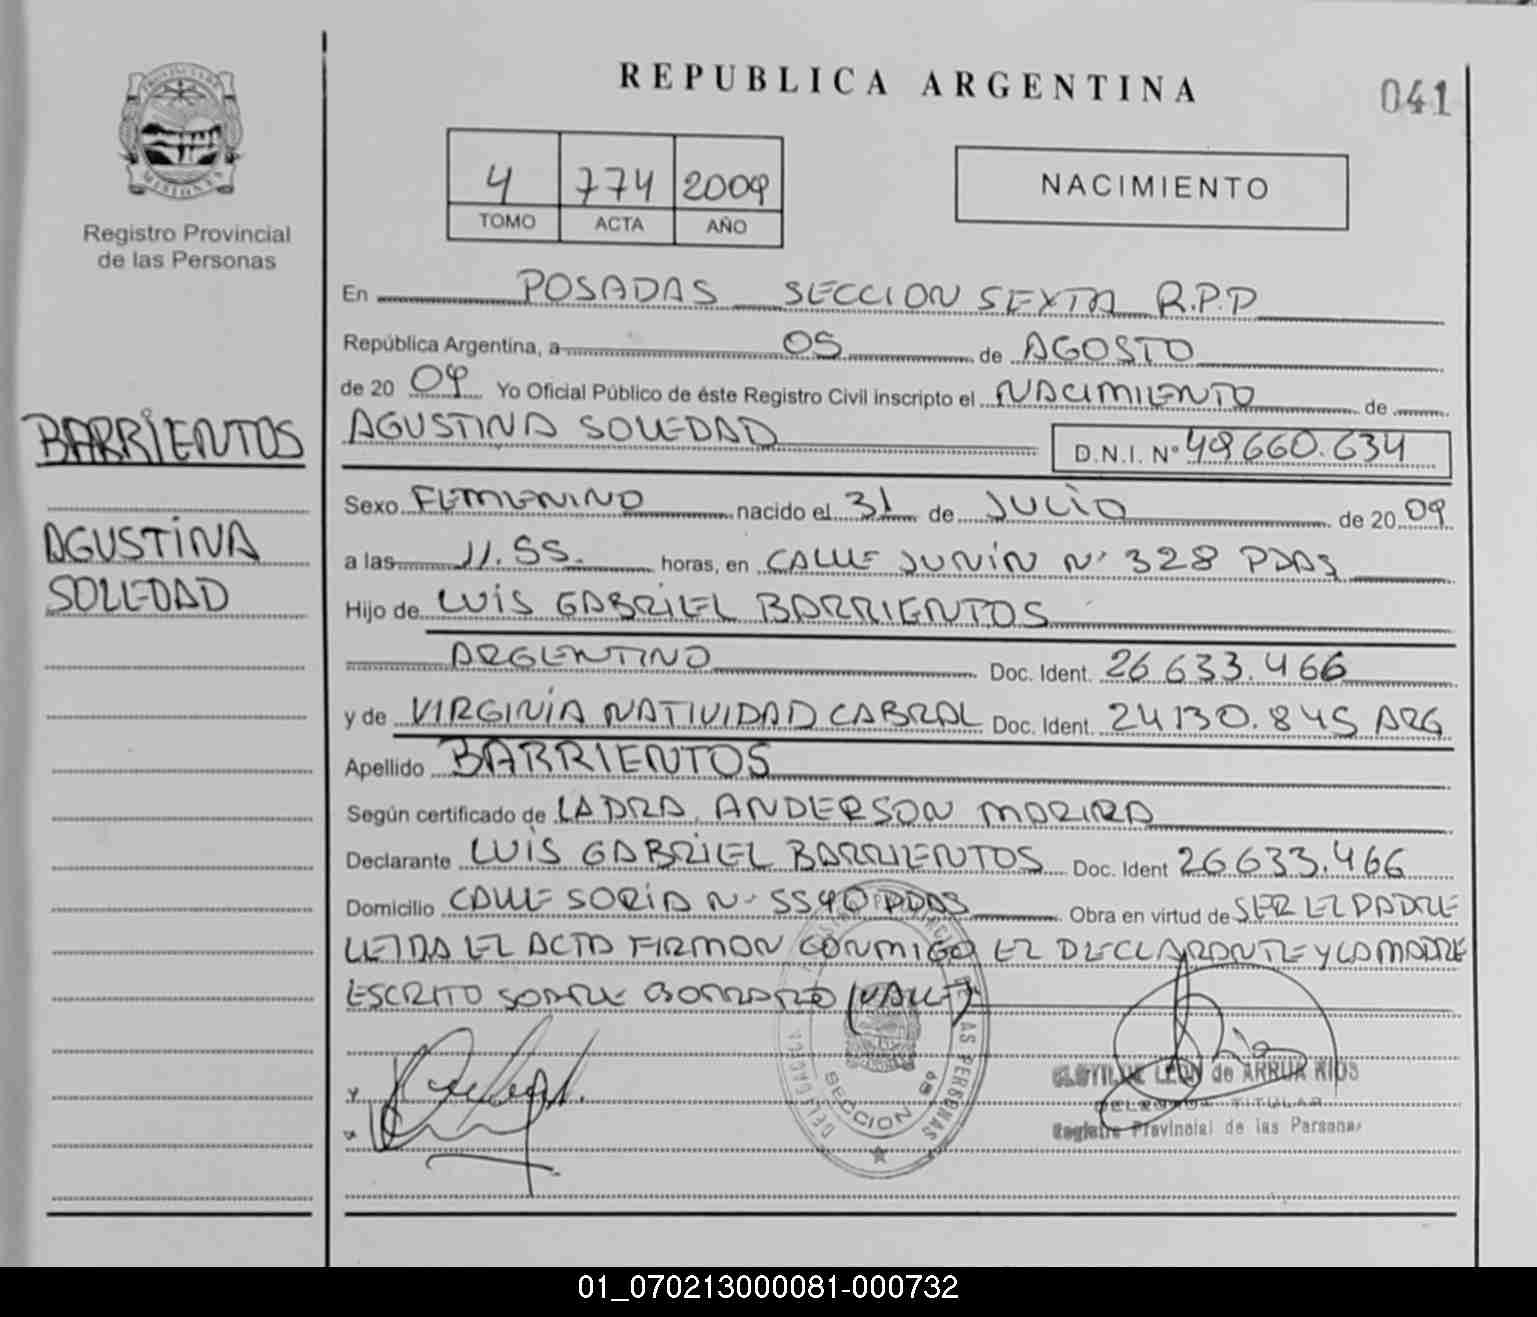 REPUBLICA ARGENTINA
041
PROVINCIA DE
MISIONES
Registro Provincial
de las Personas
4 774 2009
TOMO ACTA AÑO
NACIMIENTO
En POSADAS SECCION SEXTA R.P.P
República Argentina, a 05 de AGOSTO
de 20 09 Yo Oficial Público de éste Registro Civil inscripto el NACIMIENTO de
BARRIENTOS
AGUSTINA SOLEDAD D.N.I. N° 49660.634
Sexo FEMENINO nacido el 31 de JULIO de 20 09
AGUSTINA
SOLEDAD
a las 11.55. horas, en CALLE JUNIN N° 328 PDAS
Hijo de LUIS GABRIEL BARRIENTOS
ARGENTINO Doc. Ident. 26 633.466
y de VIRGINIA NATIVIDAD CABRAL Doc. Ident. 24130.845 ARG
Apellido BARRIENTOS
Según certificado de LA DRA. ANDERSON
Declarante LUIS GABRIEL BARRIENTOS Doc. Ident 26633.466
Domicilio CALLE SORIA N° 5540 PDAS Obra en virtud de SER EL PADRE
LEIDA EL ACTA FIRMAN CONMIGO EL DECLARANTE Y LA MADRE
ESCRITO SOBRE BORRADO (VALE)
SECCION 6ª
LEON de ARRUA RIOS
DELEGADA TITULAR
Registro Provincial de las Personas
01_070213000081-000732